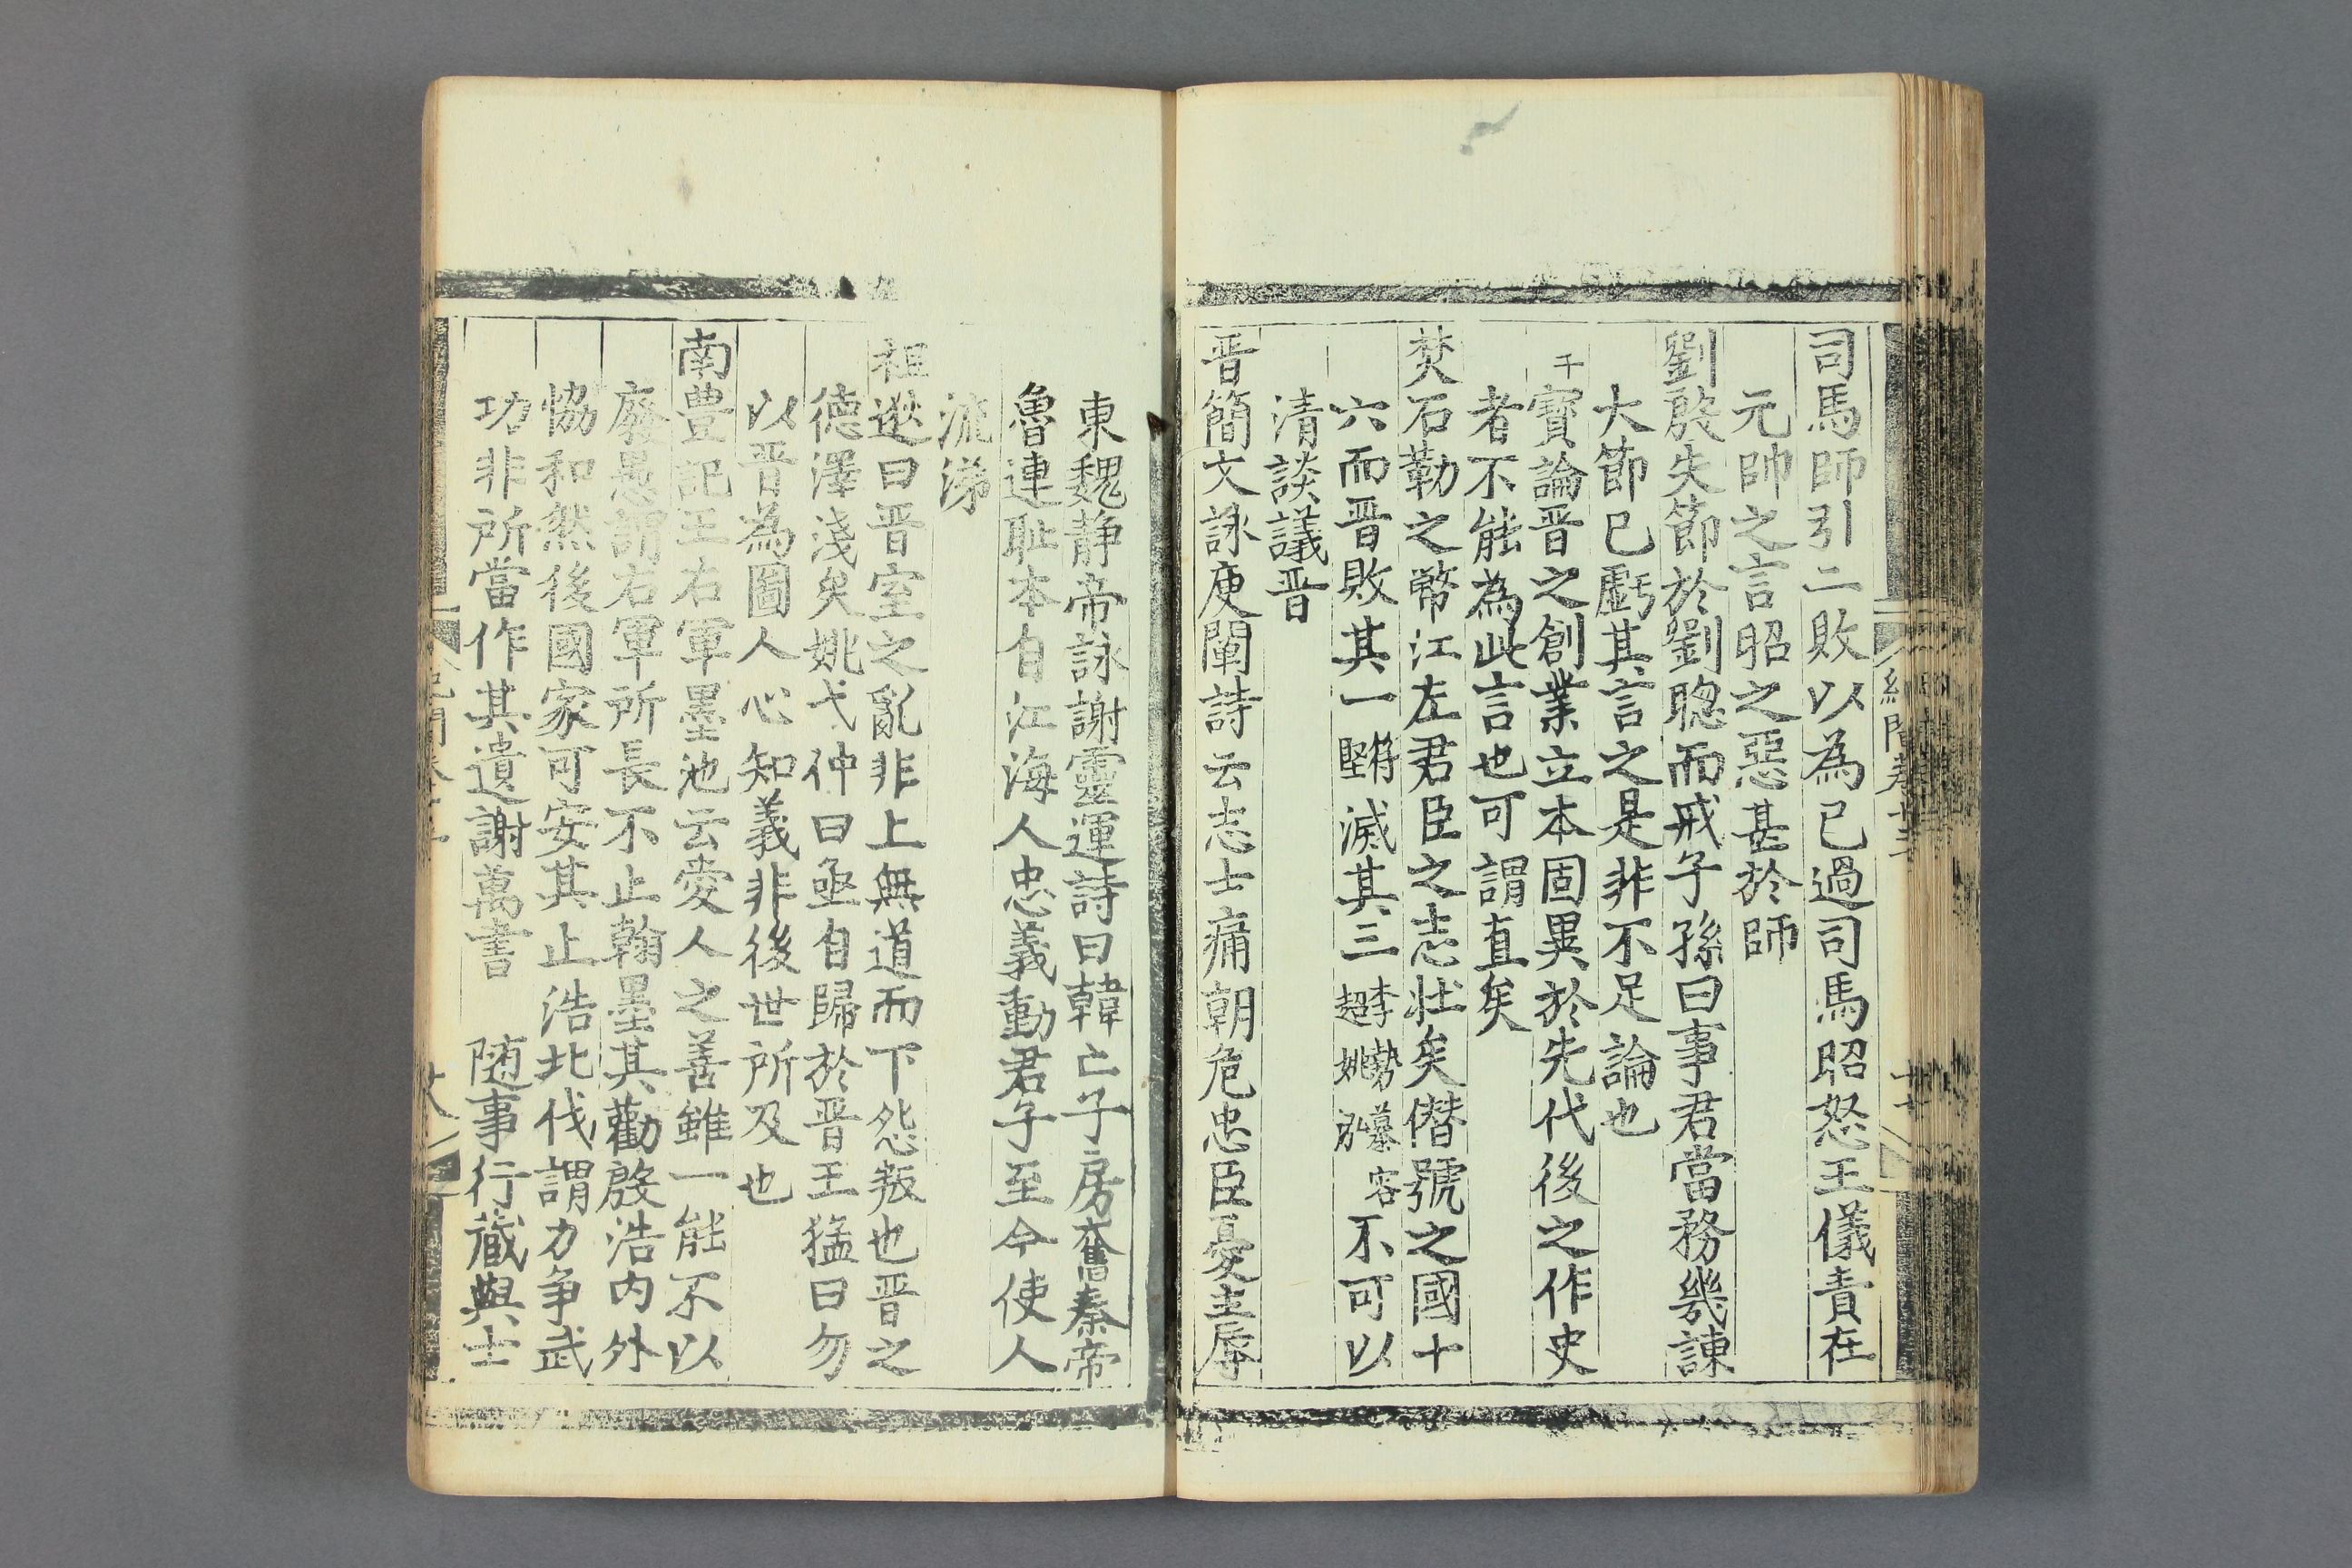 司馬師引二敗以為已過司馬昭怒王儀責在
元帥之言昭之惡甚於師
劉殷失節於劉聰而戒子孫曰事君當務幾諫
大節已虧其言之是非不足論也
干寳論晋之創業立本固異於先代後之作史
者不能為此言也可謂直矣
焚石勒之幣江左君臣之志壯矣僣號之國十
六而晋敗其一 苻堅 滅其三 李勢慕容超姚泓 不可以
清談議晋
晋簡文詠庾闡詩云志士痛朝危忠臣憂主辱
東魏静帝詠謝靈運詩曰韓亡子房奮秦帝
魯連耻本自江海人忠義動君子至今使人
流涕
祖逖曰晋室之亂非上無道而下怨叛也晋之
德澤淺矣姚弋仲曰亟自歸於晋王猛曰勿
以晋為圖人心知義非後世所及也
南豊記王右軍墨池云愛人之善雖一能不以
廢愚謂右軍所長不止翰墨其勸殷浩内外
恊和然後國家可安其止浩北伐謂力争武
功非所當作其遺謝萬書 随事行蔵與士